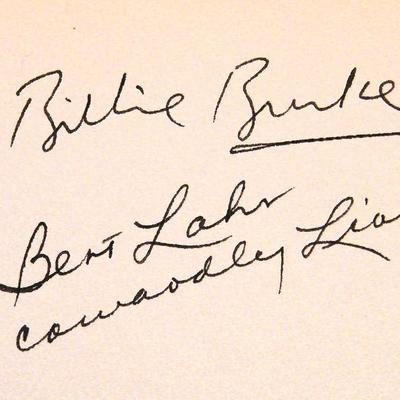 Billie Burke
Bert Lahr
cowaodley Lio